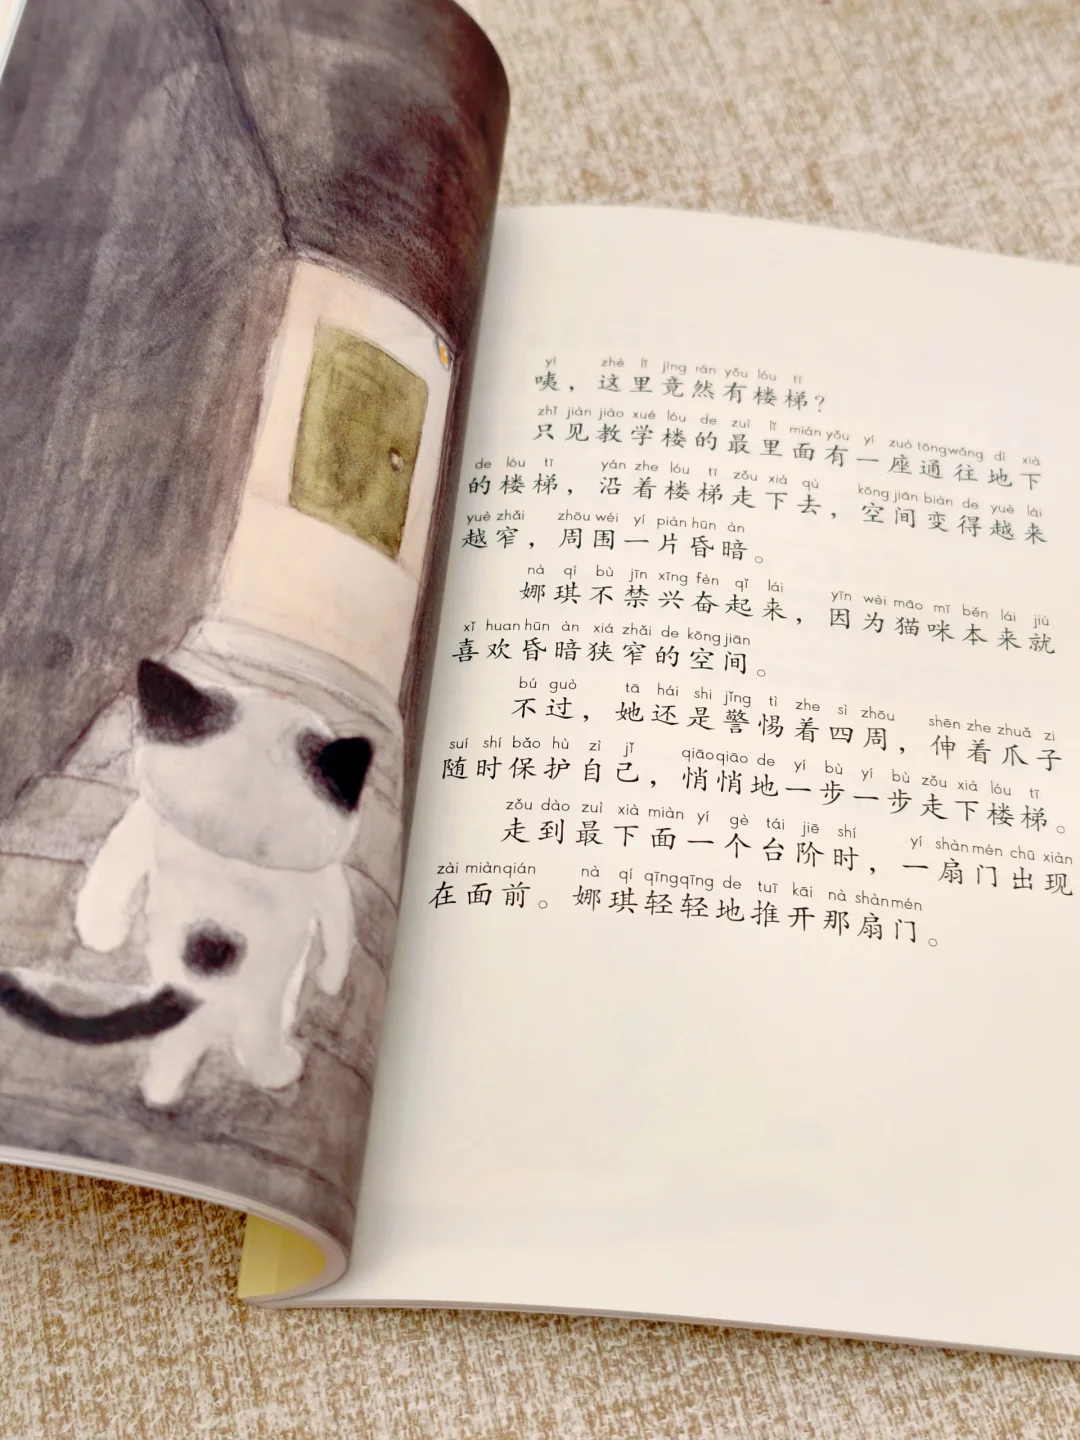 yí zhè lǐ jìng rán yǒu lóu tī
咦，这里竟然有楼梯？
zhǐ jiàn jiào xué lóu de zuì lǐ miàn yǒu yí zuò tōng wǎng dì xià
只见教学楼的最里面有一座通往地下
de lóu tī yán zhe lóu tī zǒu xià qù kōng jiān biàn de yuè lái
的楼梯，沿着楼梯走下去，空间变得越来
yuè zhǎi zhōu wéi yí piàn hūn àn
越窄，周围一片昏暗。
nà qí bù jīn xīng fèn qǐ lái yīn wèi māo mī běn lái jiù
娜琪不禁兴奋起来，因为猫咪本来就
xǐ huan hūn àn xiá zhǎi de kōng jiān
喜欢昏暗狭窄的空间。
bú guò tā hái shi jǐng tì zhe sì zhōu shēn zhe zhuǎ zi
不过，她还是警惕着四周，伸着爪子
suí shí bǎo hù zì jǐ qiāo qiāo de yí bù yí bù zǒu xià lóu tī
随时保护自己，悄悄地一步一步走下楼梯。
zǒu dào zuì xià miàn yí gè tái jiē shí yí shàn mén chū xiàn
走到最下面一个台阶时，一扇门出现
zài miàn qián nà qí qīng qīng de tuī kāi nà shàn mén
在面前。娜琪轻轻地推开那扇门。